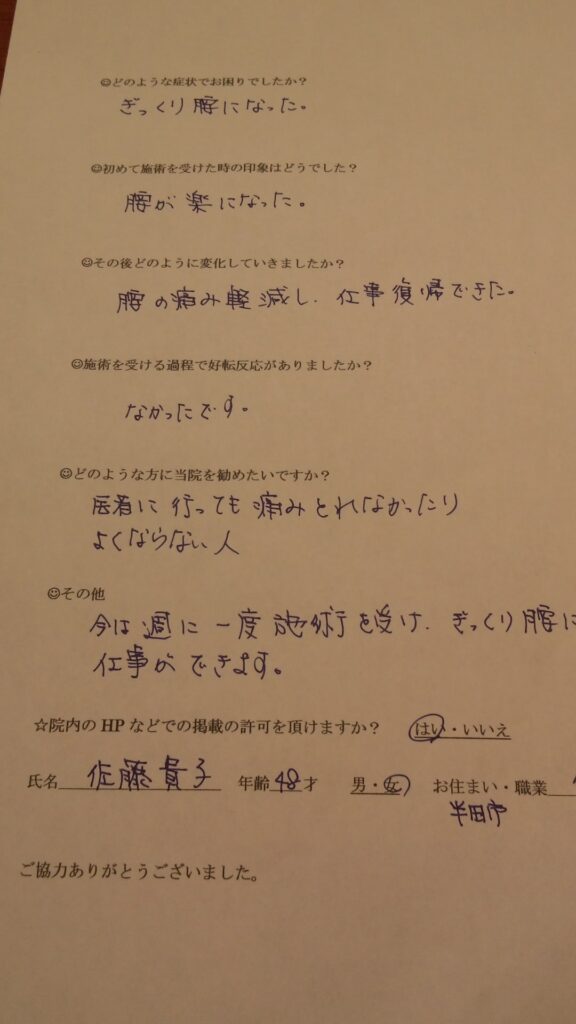 ☺どのような症状でお困りでしたか？
ぎっくり腰になった。
☺初めて施術を受けた時の印象はどうでした？
腰が楽になった。
☺その後どのように変化していきましたか？
腰の痛み軽減し、仕事復帰できた。
☺施術を受ける過程で好転反応がありましたか？
なかったです。
☺どのような方に当院を勧めたいですか？
医者に行っても痛みとれなかったり
よくならない人
☺その他
今は週に一度施術を受け、ぎっくり腰に
仕事ができます。
☆院内のHPなどでの掲載の許可を頂けますか？ はい・いいえ
氏名 佐藤貴子 年齢48才 男・女 お住まい・職業
半田市
ご協力ありがとうございました。